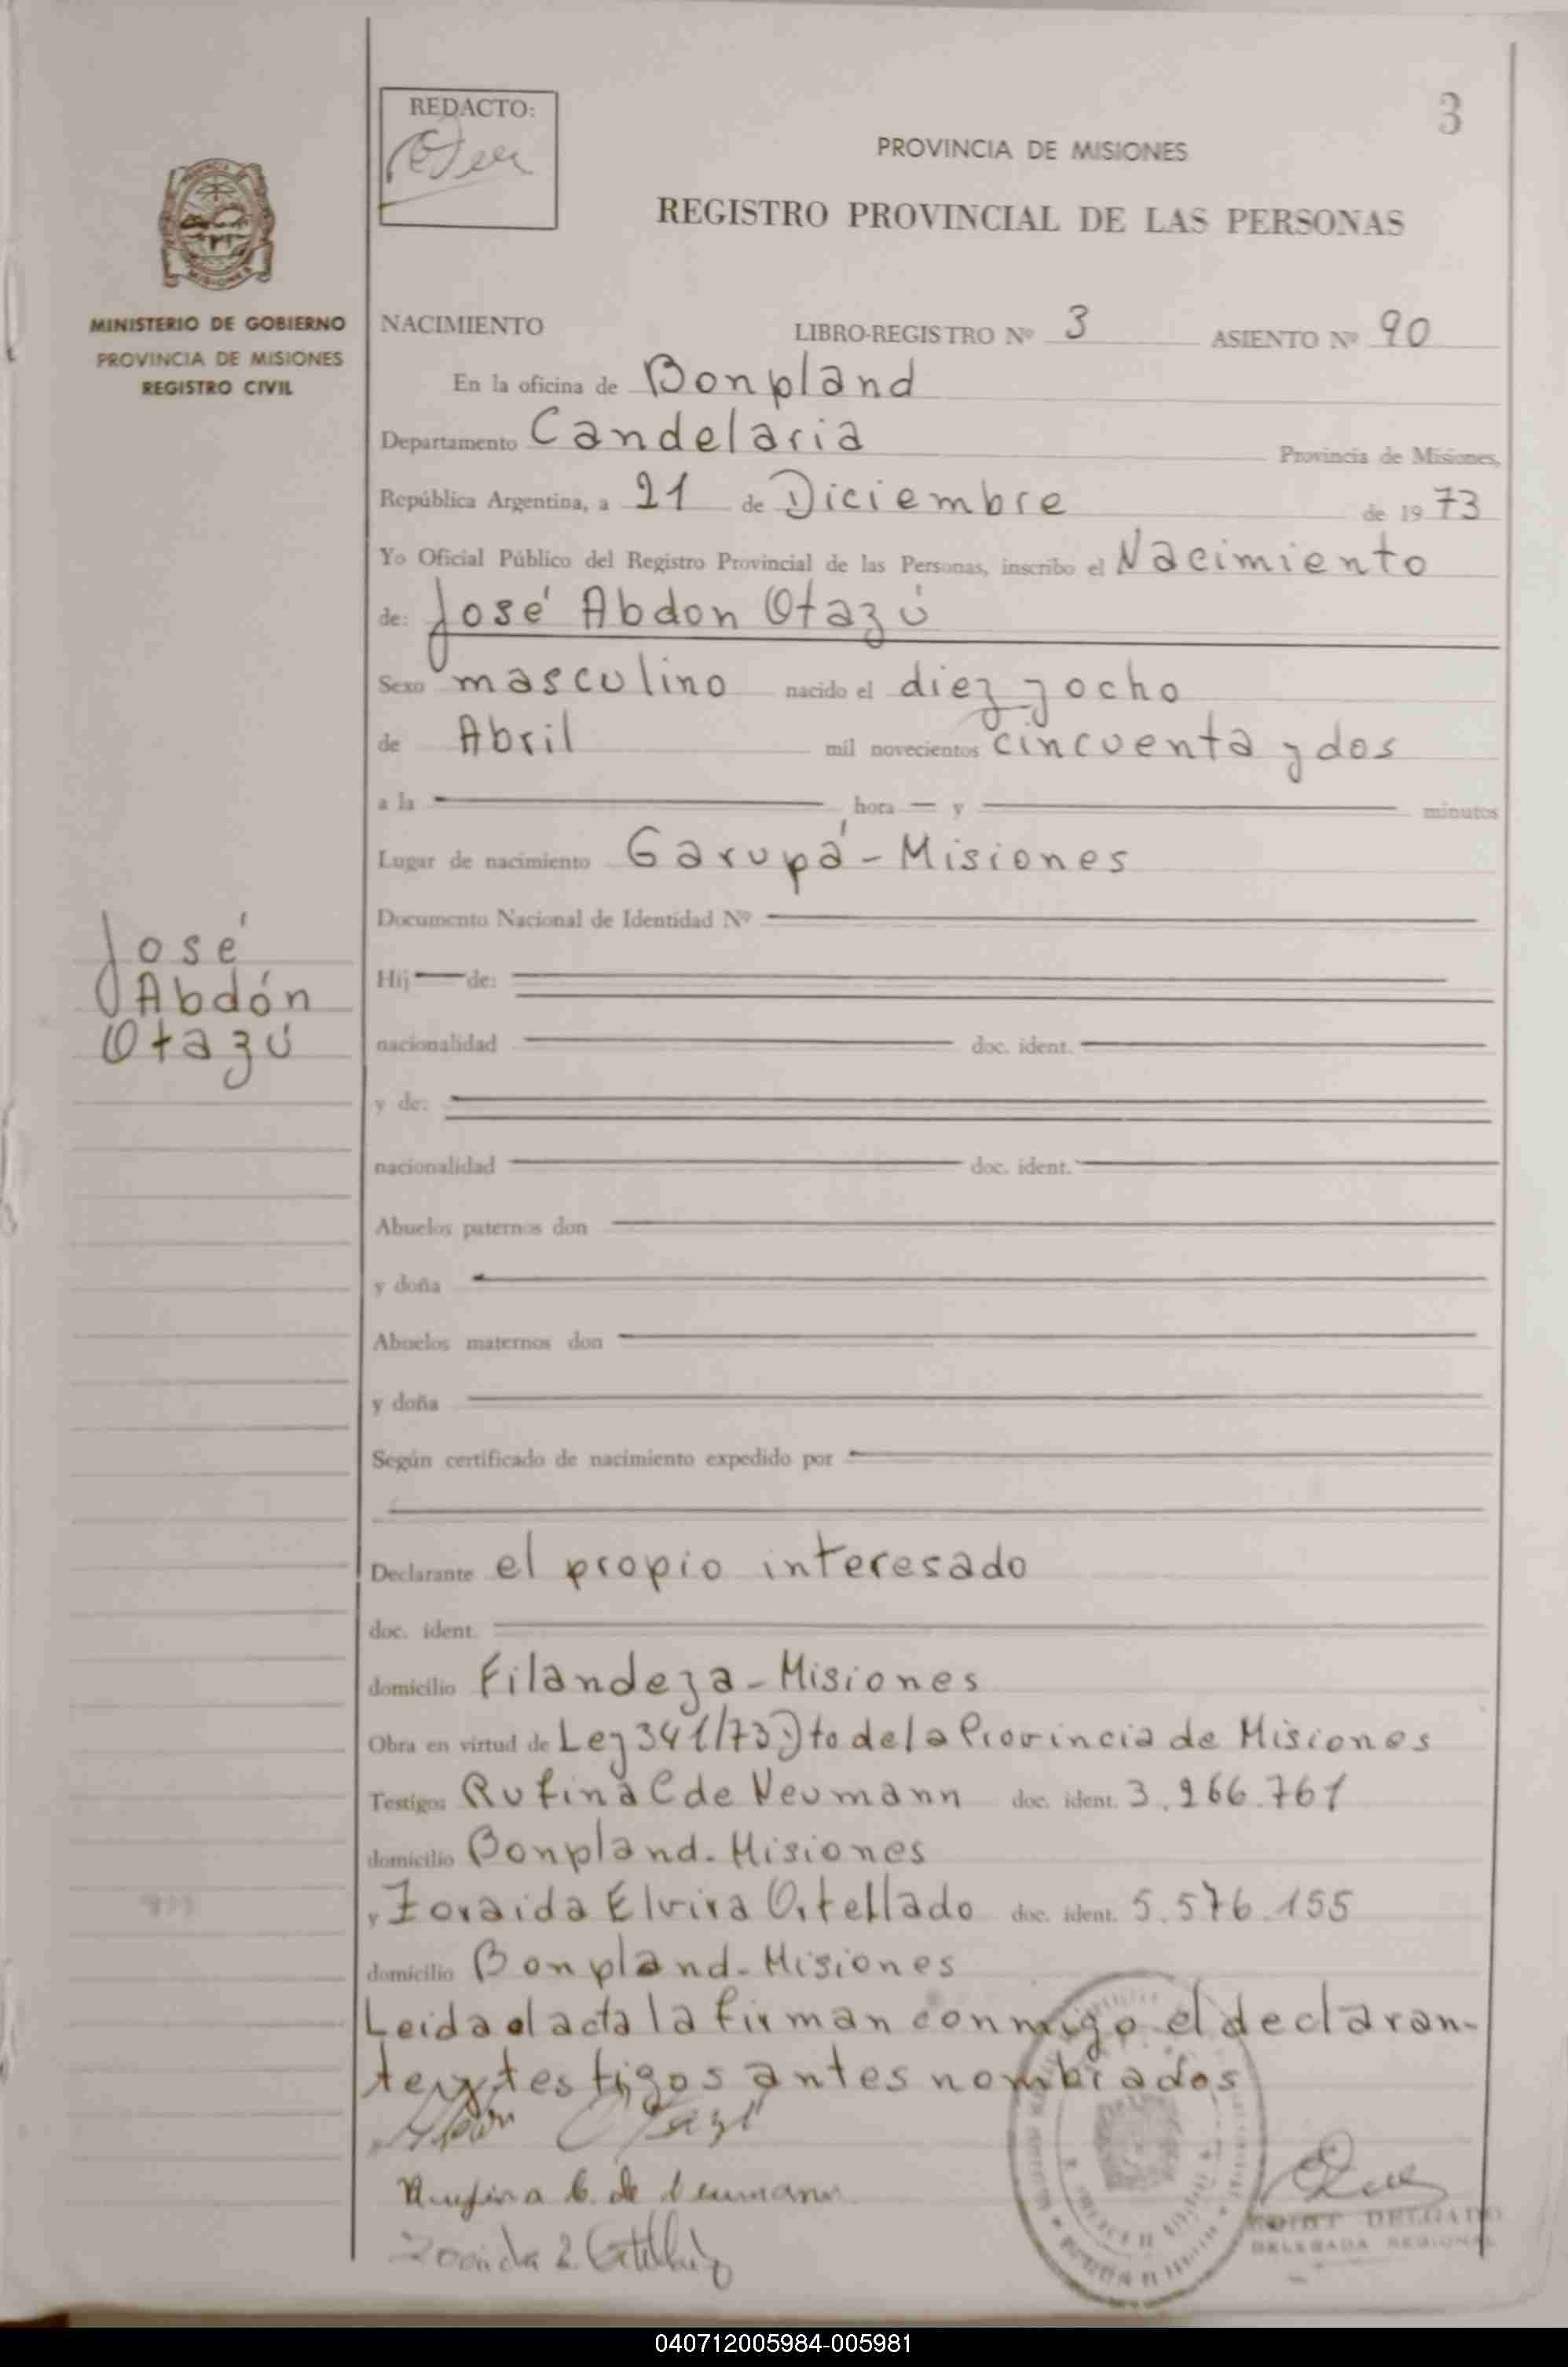 REDACTO:
3
PROVINCIA DE MISIONES
REGISTRO PROVINCIAL DE LAS PERSONAS
MINISTERIO DE GOBIERNO
PROVINCIA DE MISIONES
REGISTRO CIVIL
NACIMIENTO LIBRO-REGISTRO Nº 3 ASIENTO Nº 90
En la oficina de Bonpland
Departamento Candelaria Provincia de Misiones,
República Argentina, a 21 de Diciembre de 1973
Yo Oficial Público del Registro Provincial de las Personas, inscribo el Nacimiento
de: José Abdon Otazú
Sexo masculino nacido el diez y ocho
de Abril mil novecientos cincuenta y dos
a la hora y minutos
Lugar de nacimiento Garupá - Misiones
Documento Nacional de Identidad Nº
José
Abdón
Otazú
Hij de:
nacionalidad doc. ident.
y de:
nacionalidad doc. ident.
Abuelos paternos don
y doña
Abuelos maternos don
y doña
Según certificado de nacimiento expedido por
Declarante el propio interesado
doc. ident.
domicilio Filandeza - Misiones
Obra en virtud de Ley 341/73 Dto de la Provincia de Misiones
Testigos Rufina C de Neumann doc. ident. 3.266.761
domicilio Bonpland - Misiones
y Zoraida Elvira Ortellado doc. ident. 5.576.155
domicilio Bonpland - Misiones
Leida el acta la firman conmigo el declaran-
te y testigos antes nombrados
Rufina C. de Neumann
DELGADO
DELEGADA REGIONAL
040712005984-005981